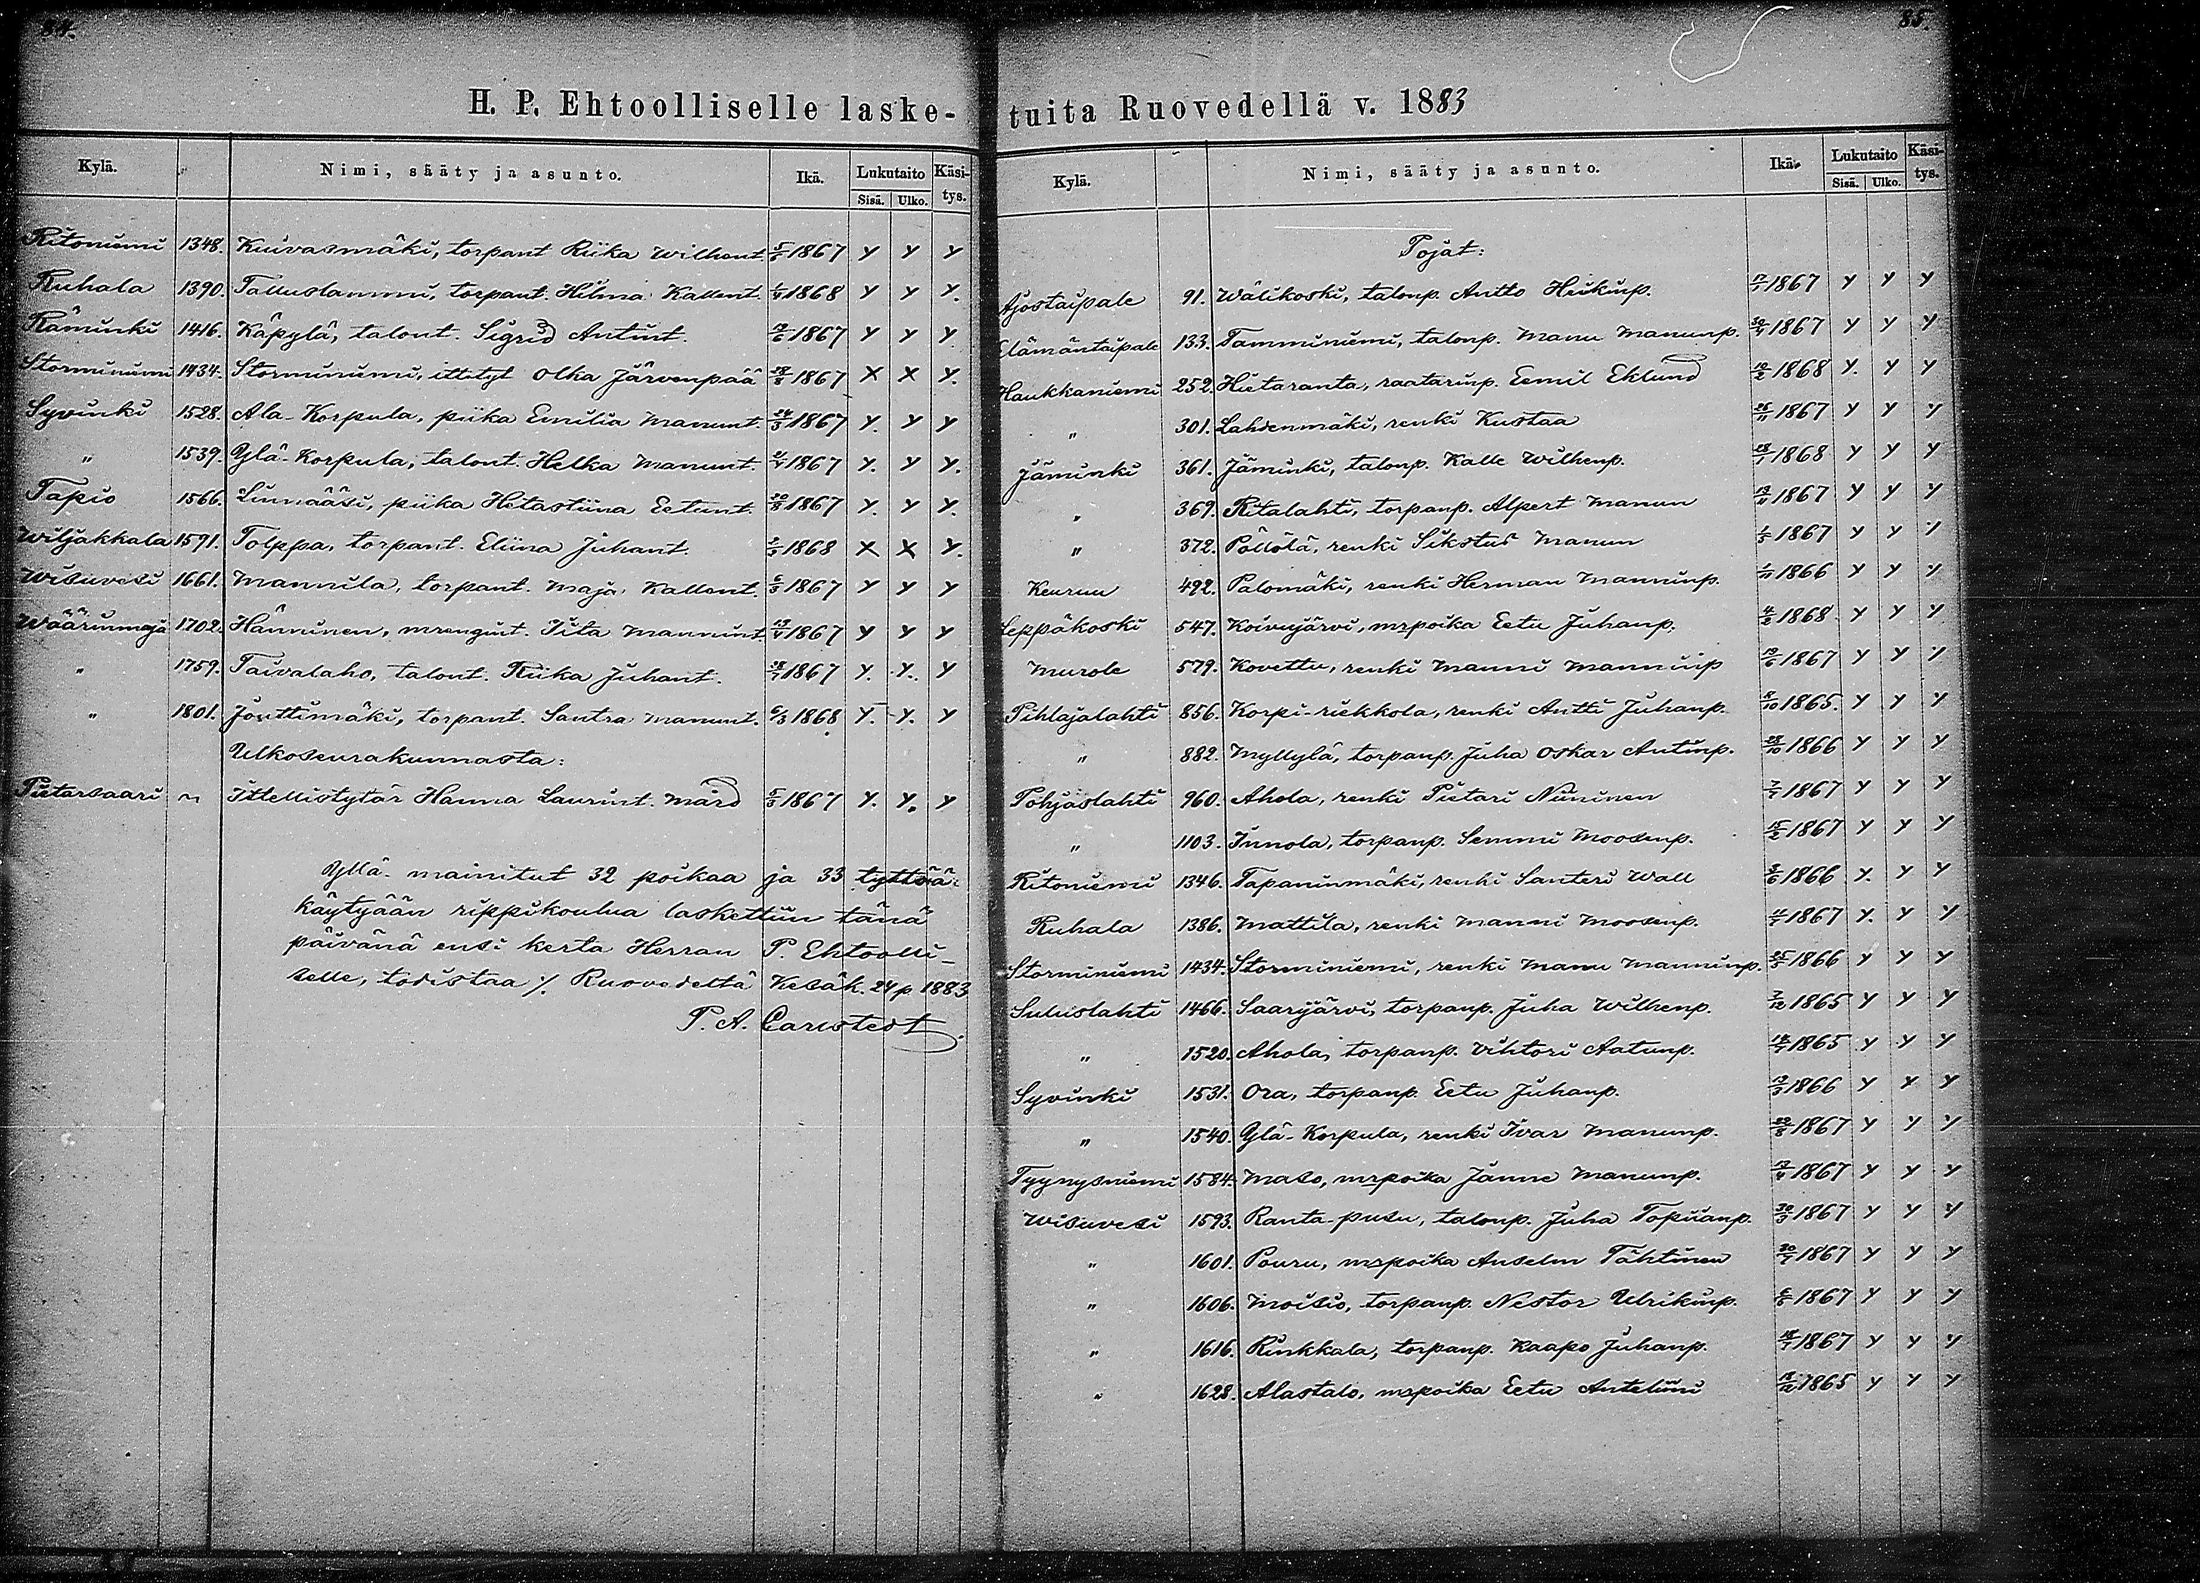 84.
H. P. Ehtoolliselle laske-
Kylä. Nimi, sääty ja asunto. Ikä. Lukutaito Käsi-
Sisä. Ulko. tys.
Ritoniemi 1348. Kuivasmäki, torpant Riika Wilhent 1867 y y y
Ruhala 1390. Talluslammi, torpant. Hilma Kallent. 1868 y y y.
Räminki 1416. Käpylä, talont. Sigrid Antint. 1867 y y y
Storminiemi 1434. Storminiemi, ittetyt Olka Järvenpää 1867 x x y.
Syvinki 1528. Ala-Korpula, piika Emilia Manunt. 24/3 1867 y. y y
" 1539. Ylä-Korpula, talont. Helka Manunt. 1867 y. y y.
Tapio 1566. Linnääsi, piika Hetastiina Eetunt. 1867 y. y y.
Wiljakkala 1591. Tolppa, torpant. Eliina Juhant. 1868 x x y.
Wisuvesi 1661. Mannila, torpant. Maja Kallent. 1867 y y y
Wäärinmaja 1702. Hänninen, mrengint. Iita Mannint. 1867 y y y
" 1759. Taivalaho, talont. Riika Juhant. 1867 y. y. y
" 1801. Jouttimäki, torpant. Santra Manunt. 6/3 1868 y. y. y
Ulkoseurakunnasta:
Pietarsaari Ittellistytär Hanna Laurint. Mård 1867 y. y. y
Yllä-mainitut 32 poikaa ja 33 tyttöä
käytyään rippikoulua laskettiin tänä
päivänä ensi kerta Herran P. Ehtoolli-
selle, todistaa ⁒ Ruovedeltä Kesäk. 24 p 1883
P. A. Carlstedt.
85.
tuita Ruovedellä v. 1883
Kylä. Nimi, sääty ja asunto. Ikä. Lukutaito Käsi-
Sisä. Ulko. tys.
Pojat:
Ajostaipale 91. Wälikoski, talonp. Antto Heikinp. 1867 y y y
Elämäntaipale 133. Tamminiemi, talonp. Manu Manunp. 1867 y y y
Haukkaniemi 252. Hietaranta, raatarinp. Eemil Eklund 1868 y. y y
" 301. Lahdenmäki, renki Kustaa 26/11 1867 y y y
Jäminki 361. Jäminki, talonp. Kalle Wilhenp. 1868 y y y
" 369. Ritalahti, torpanp. Alpert Manun 13/11 1867 y y y
" 372. Pöllölä, renki Sikstus Manun 1867 y y y
Keuruu 492. Palomäki, renki Herman Manninp. 1866 y y y
Leppäkoski 547. Koivujärvi, mrpoika Eetu Juhanp. 1868 y y y
Murole 579. Kovettu, renki Manni Manninp 1867 y y y
Pihlajalahti 856. Korpi-riekkola, renki Antti Juhanp. 1865. y y y
" 882. Myllylä, torpanp. Juha Oskar Antinp. 1866 y y y
Pohjaslahti 960. Ahola, renki Pietari Niininen 1867 y y y
" 1103. Innola, torpanp. Semmi Moosenp. 1867 y y y
Ritoniemi 1346. Tapaninmäki, renki Santeri Wall 1866 y. y y
Ruhala 1386. Mattila, renki Manni Moosenp. 1867 y. y y
Storminiemi 1434. Storminiemi, renki Manu Manninp. 1866 y y y
Suluslahti 1466. Saarijärvi, torpanp. Juha Wilhenp. 1865 y y y
" 1520. Ahola, torpanp. Vihtori Aatunp. 1865 y y y
Syvinki 1531. Ora, torpanp. Eetu Juhanp. 1866 y y y
" 1540. Ylä-Korpula, renki Ivar Manunp. 1867 y y y
Tyynysniemi 1584. Maso, mrpoika Janne Manunp. 1867 y y y
Wisuvesi 1593. Ranta-pusu, talonp. Juha Topiianp. 1867 y y y
" 1601. Pouru, mrpoika Anselm Tähtinen 1867 y y y
" 1606. Moisio, torpanp. Nestor Ulrikinp. 1867 y y y
" 1616. Rinkkala, torpanp. Kaapo Juhanp. 1867 y y y
" 1628. Alastalo, mrpoika Eetu Anteliini 1865 y y y